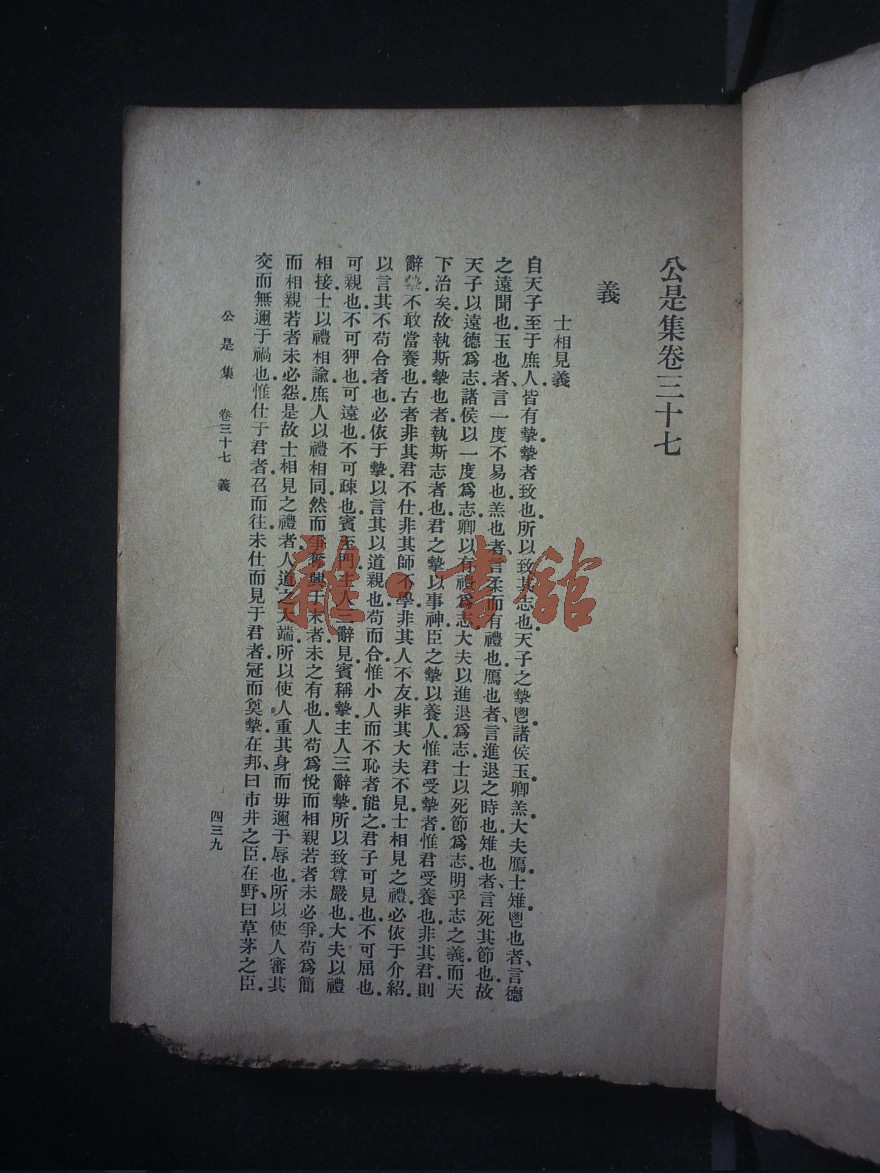 公是集卷三十七
義
士相見義
自天子至于庶人皆有摯摯者致也所以致其志也天子之摯鬯諸侯玉卿羔大夫鴈士雉鬯也者言德
之遠聞也玉也者言一度不易也羔也者言柔而有禮也鴈也者言進退之時也雉也者言死其節也故
天子以遠德爲志諸侯以一度爲志卿以有禮爲志大夫以進退爲志士以死節爲志明乎志之義而天
下治矣故執斯摯也者執斯志者也君之摯以事神臣之摯以養人惟君受摯者惟君受養也非其君則
辭摯不敢當養也古者非其君不仕非其師不學非其人不友非其大夫不見士相見之禮必依于介紹
以言其不苟合者也必依于摯以言其以道親也苟而合惟小人而不恥者能之君子可見也不可屈也
可親也不可狎也可遠也不可疎也賓至門主人三辭見賓稱摯主人三辭摯所以致尊嚴也大夫以禮
相接士以禮相諭庶人以禮相同然而爭奪興于末者未之有也人苟爲悅而相親若者未必爭苟爲簡
而相親若者未必怨是故士相見之禮者人道之大端所以使人重其身而毋邇于辱也所以使人審其
交而無邇于禍也惟仕于君者召而往未仕而見于君者冠而奠摯在邦曰市井之臣在野曰草茅之臣
公是集 卷三十七 義
四三九
雜·書館